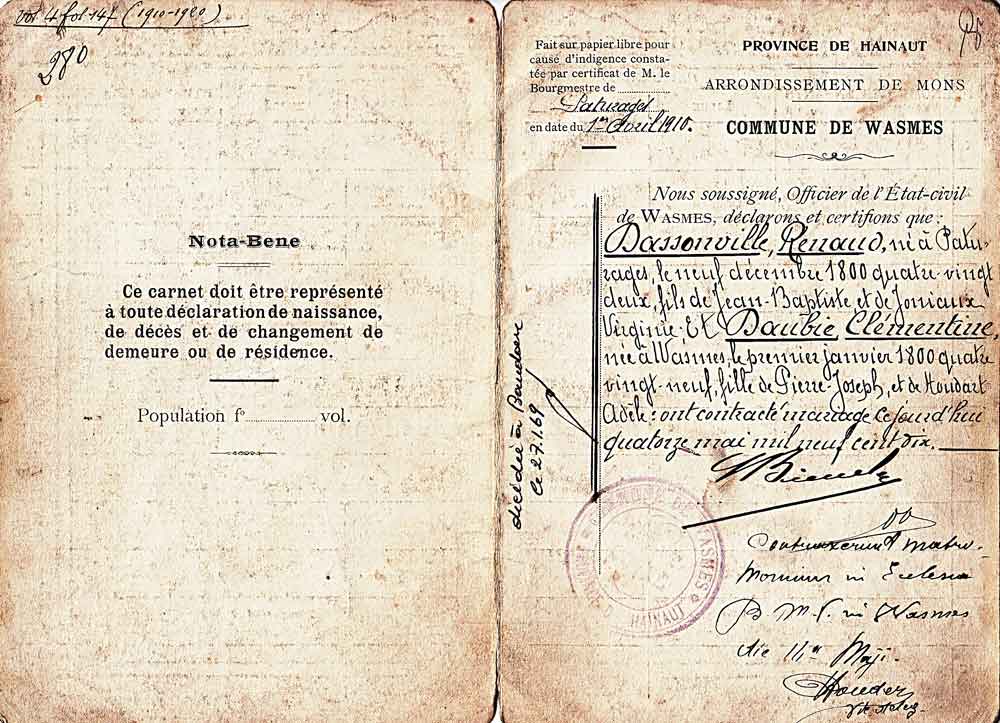 Vol 4 fol 147 (1910-1920)
280
Nota-Bene
Ce carnet doit être représenté
à toute déclaration de naissance,
de décès et de changement de
demeure ou de résidence.
Population f° vol.
Fait sur papier libre pour
cause d'indigence consta-
tée par certificat de M. le
Bourgmestre de
Pâturages
en date du 1er Avril 1910.
PROVINCE DE HAINAUT
ARRONDISSEMENT DE MONS
COMMUNE DE WASMES
Nous soussigné, Officier de l'État-civil
de WASMES, déclarons et certifions que :
Dassonville, Renaud, né à Patu-
rages, le neuf décembre 1800 quatre-vingt
deux, fils de Jean-Baptiste et de Joniaux
Virginie. Et Daubie Clémentine,
née à Wasmes, le premier janvier 1800 quatre
vingt-neuf, fille de Pierre-Joseph, et de Houdart
Adèle : ont contracté mariage ce jourd'hui
quatorze mai mil neuf cent dix.
décédée à Baudour
le 27.1.69
COMMUNE DE WASMES
HAINAUT
Contraxerunt matri-
monium in Ecclesia
B M V in Wasmes
die Maji.